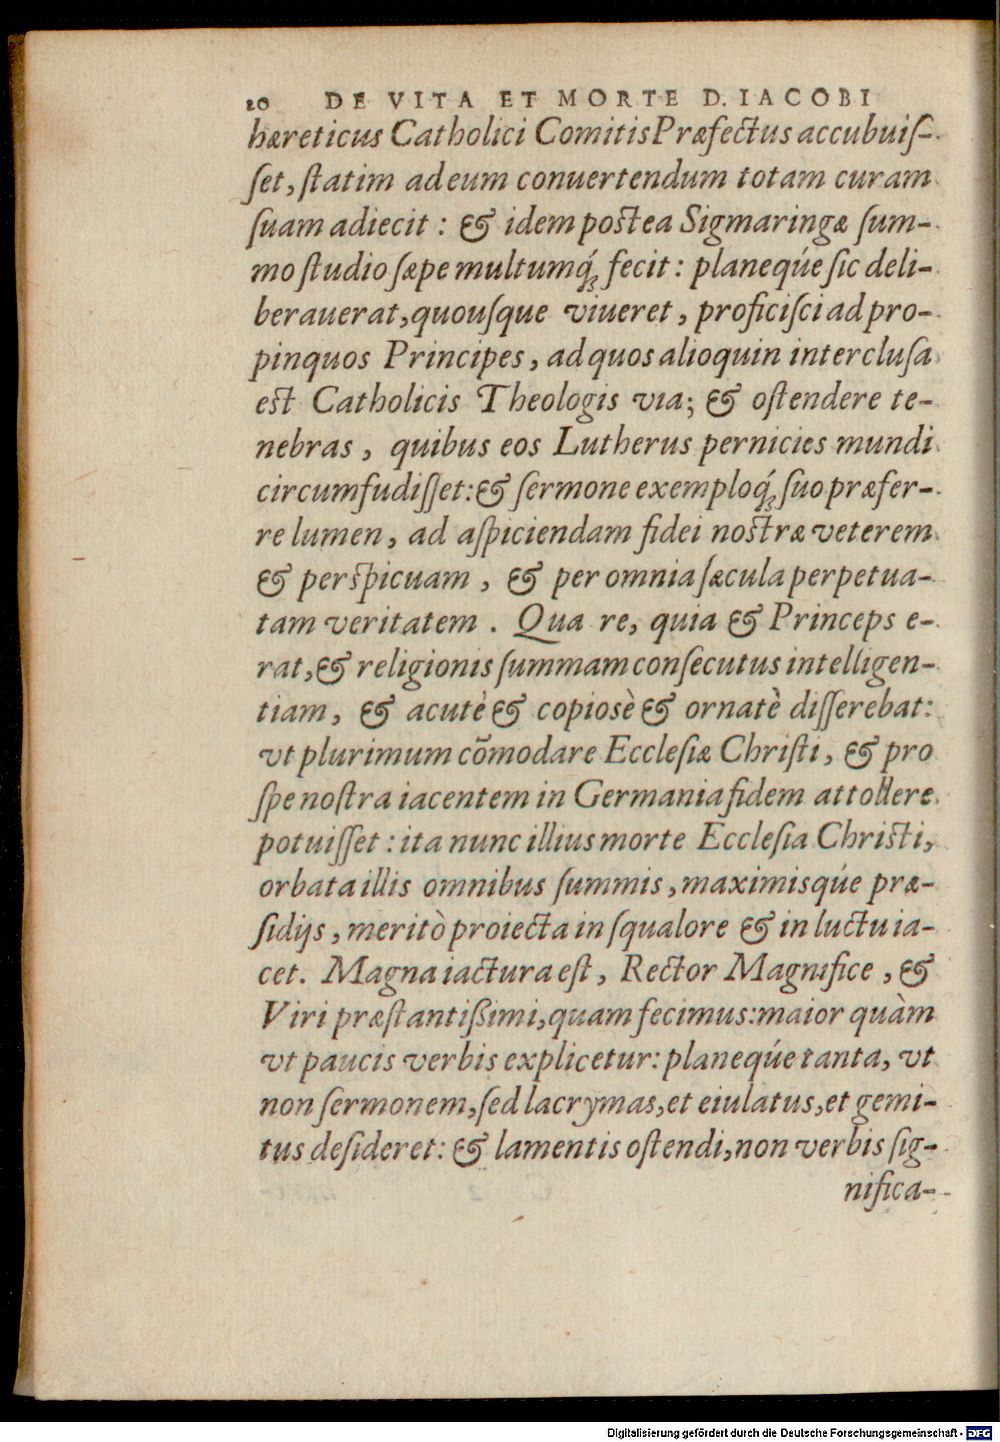 20 DE VITA ET MORTE D. IACOBI
hæreticus Catholici Comitis Præfectus accubuiſ-
ſet, ſtatim ad eum conuertendum totam curam
ſuam adiecit : & idem poſtea Sigmaringæ ſum-
mo ſtudio ſæpe multumq́ꝫ fecit : planeqúe ſic deli-
berauerat, quouſque viueret, proficiſci ad pro-
pinquos Principes, ad quos alioquin interclusa
eſt Catholicis Theologis via; & oſtendere te-
nebras, quibus eos Lutherus pernicies mundi
circumfudiſſet: & ſermone exemploq́ꝫ ſuo præfer-
re lumen, ad aſpiciendam fidei noſtræ veterem
& perſpicuam, & per omnia ſæcula perpetua-
tam veritatem. Qua re, quia & Princeps e-
rat, & religionis ſummam conſecutus intelligen-
tiam, & acutè & copiosè & ornatè diſſerebat:
vt plurimum cõmodare Eccleſiæ Chriſti, & pro
ſpe noſtra iacentem in Germania fidem attollere
potuiſſet : ita nunc illius morte Eccleſia Chriſti,
orbata illis omnibus ſummis, maximisqúe præ-
ſidijs, meritò proiecta in ſqualore & in luctu ia-
cet. Magna iactura eſt, Rector Magnifice, &
Viri præſtantißimi, quam fecimus: maior quàm
vt paucis verbis explicetur: planeqúe tanta, vt
non ſermonem, ſed lacrymas, et eiulatus, et gemi-
tus deſideret: & lamentis oſtendi, non verbis ſig-
nifica-
Digitalisierung gefördert durch die Deutsche Forschungsgemeinschaft - DFG